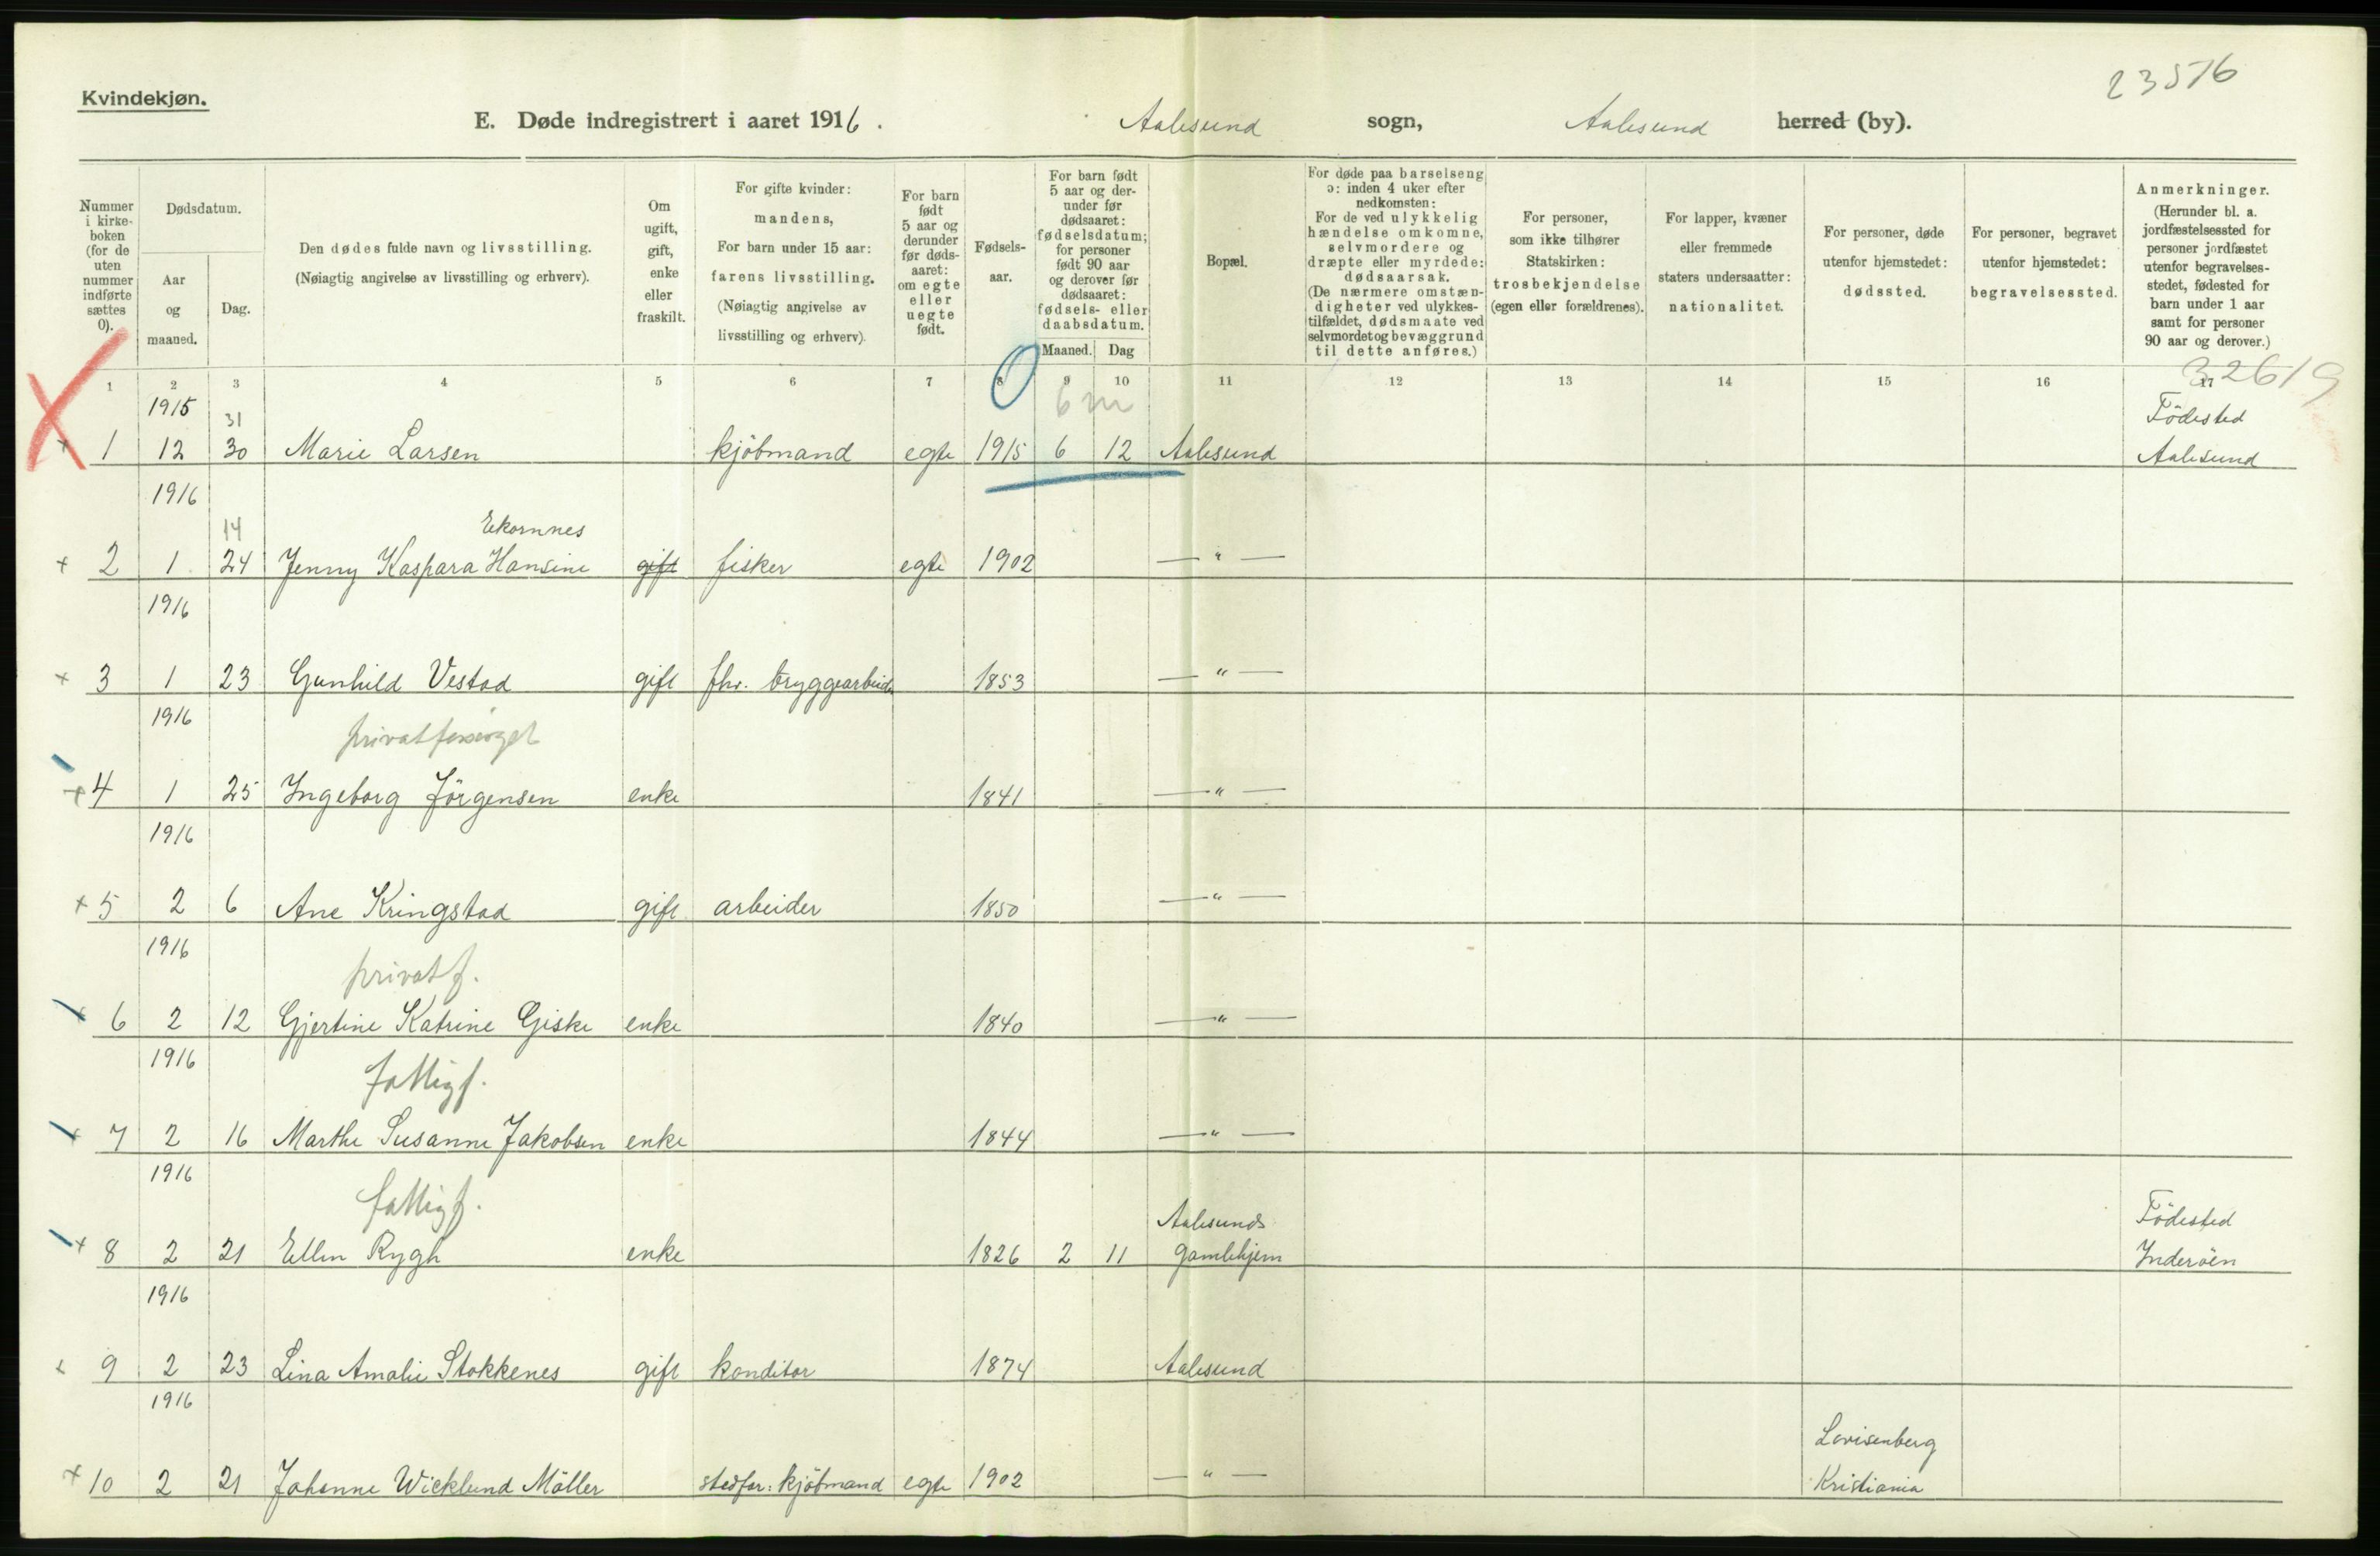 Kvindekjøn.
23576
E. Døde indregistrert i aaret 1916.
Aalesund sogn, Aalesund herred (by).
Nummer i kirke-boken (for de uten nummer indførte sættes 0).
Dødsdatum.
Aar og maaned.
Dag.
Den dødes fulde navn og livsstilling.
(Nøiagtig angivelse av livsstilling og erhverv).
Om ugift, gift, enke eller fraskilt.
For gifte kvinder: mandens,
For barn under 15 aar: farens livsstilling.
(Nøiagtig angivelse av livsstilling og erhverv).
For barn født 5 aar og derunder før døds-aaret: om egte eller uegte født.
Fødsels-aar.
For barn født 5 aar og der-under før dødsaaret: fødselsdatum; for personer født 90 aar og derover før dødsaaret: fødsels- eller daabsdatum.
Maaned. Dag
Bopæl.
For døde paa barselseng ɔ: inden 4 uker efter nedkomsten:
For de ved ulykkelig hændelse omkomne, selvmordere og dræpte eller myrdede: dødsaarsak.
(De nærmere omstæn-digheter ved ulykkes-tilfældet, dødsmaate ved selvmordet og bevæggrund til dette anføres.)
For personer, som ikke tilhører Statskirken: trosbekjendelse (egen eller forældrenes).
For lapper, kvæner eller fremmede staters undersaatter: nationalitet.
For personer, døde utenfor hjemstedet: dødssted.
For personer, begravet utenfor hjemstedet: begravelsessted.
Anmerkninger.
(Herunder bl. a. jordfæstelsessted for personer jordfæstet utenfor begravelses-stedet, fødested for barn under 1 aar samt for personer 90 aar og derover.)
1 2 3 4 5 6 7 8 9 10 11 12 13 14 15 16 17
32619
0 6 m
1915 31 Födested
1 12 30 Marie Larsen kjöbmand egte 1915 6 12 Aalesund Aalesund
1916
14 Ekornnes
2 1 24 Jenny Kaspara Hansine gift fisker egte 1902 — " —
1916
3 1 23 Gunhild Vestad gift fhv. bryggearbeider 1853 — " —
1916
privatforsörget
4 1 25 Ingeborg Jörgensen enke 1841 — " —
1916
5 2 6 Ane Kringstad gift arbeider 1850 — " —
1916
privatf.
6 2 12 Gjertine Katrine Giske enke 1840 — " —
1916
fattigf.
7 2 16 Marthe Susanne Jakobsen enke 1844 — " —
1916
fattigf.
Aalesunds Födested
8 2 21 Ellen Rygh enke 1826 2 11 gamlehjem Inderöen
1916
9 2 23 Lina Amalie Stokkenes gift konditor 1874 Aalesund
1916
Lovisenberg
10 2 21 Johanne Wicklund Möller stedfar: kjöbmand egte 1902 — " — Kristiania